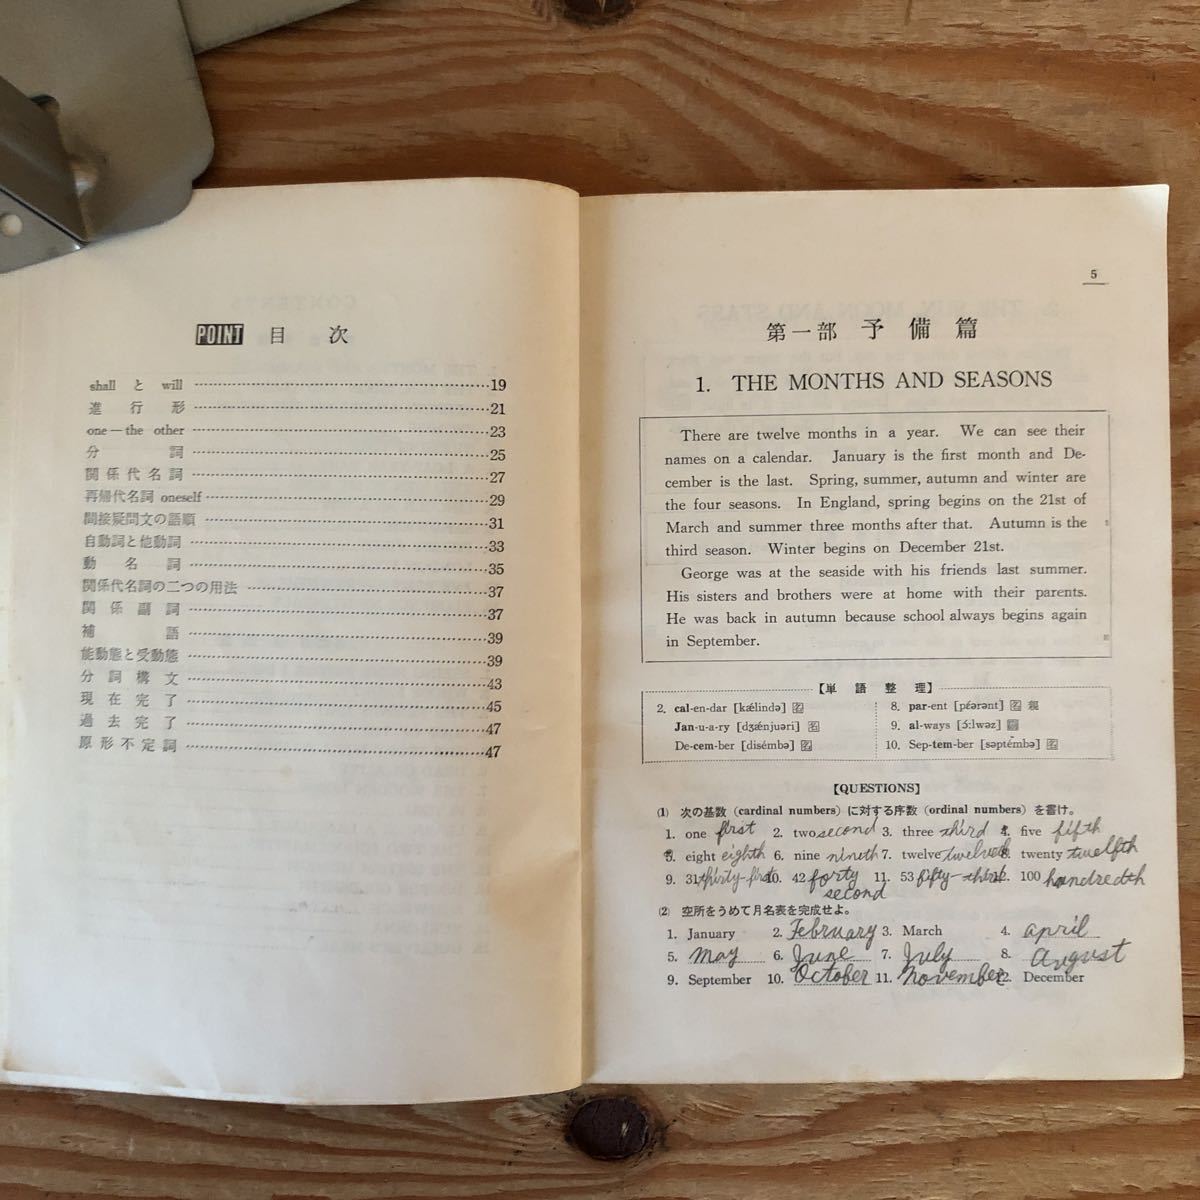 POINT 目次
shall と will 19
進行形 21
one—the other 23
分詞 25
関係代名詞 27
再帰代名詞 oneself 29
間接疑問文の語順 31
自動詞と他動詞 33
動名詞 35
関係代名詞の二つの用法 37
関係副詞 37
補語 39
能動態と受動態 39
分詞構文 43
現在完了 45
過去完了 47
原形不定詞 47
5
第一部 予備篇
1. THE MONTHS AND SEASONS
There are twelve months in a year. We can see their
names on a calendar. January is the first month and De-
cember is the last. Spring, summer, autumn and winter are
the four seasons. In England, spring begins on the 21st of
March and summer three months after that. Autumn is the
third season. Winter begins on December 21st.
George was at the seaside with his friends last summer.
His sisters and brothers were at home with their parents.
He was back in autumn because school always begins again
in September.
【単語整理】
2. cal-en-dar [kǽlində] 名
Jan-u-a-ry [dʒǽnjuəri] 名
De-cem-ber [disémbə] 名
8. par-ent [pέərənt] 名 親
9. al-ways [ɔ́:lwəz] 副
10. Sep-tem-ber [səptémbə] 名
【QUESTIONS】
(1) 次の基数 (cardinal numbers) に対する序数 (ordinal numbers) を書け。
1. one first 2. two second 3. three third 4. five fifth
5. eight eighth 6. nine nineth 7. twelve 8. twenty twelfth
9. 31 thirty-first 10. 42 forty second 11. 53 fifty-third 12. 100 hundredth
(2) 空所をうめて月名表を完成せよ。
1. January 2. February 3. March 4. april
5. may 6. June 7. July 8. august
9. September 10. October 11. november 12. December